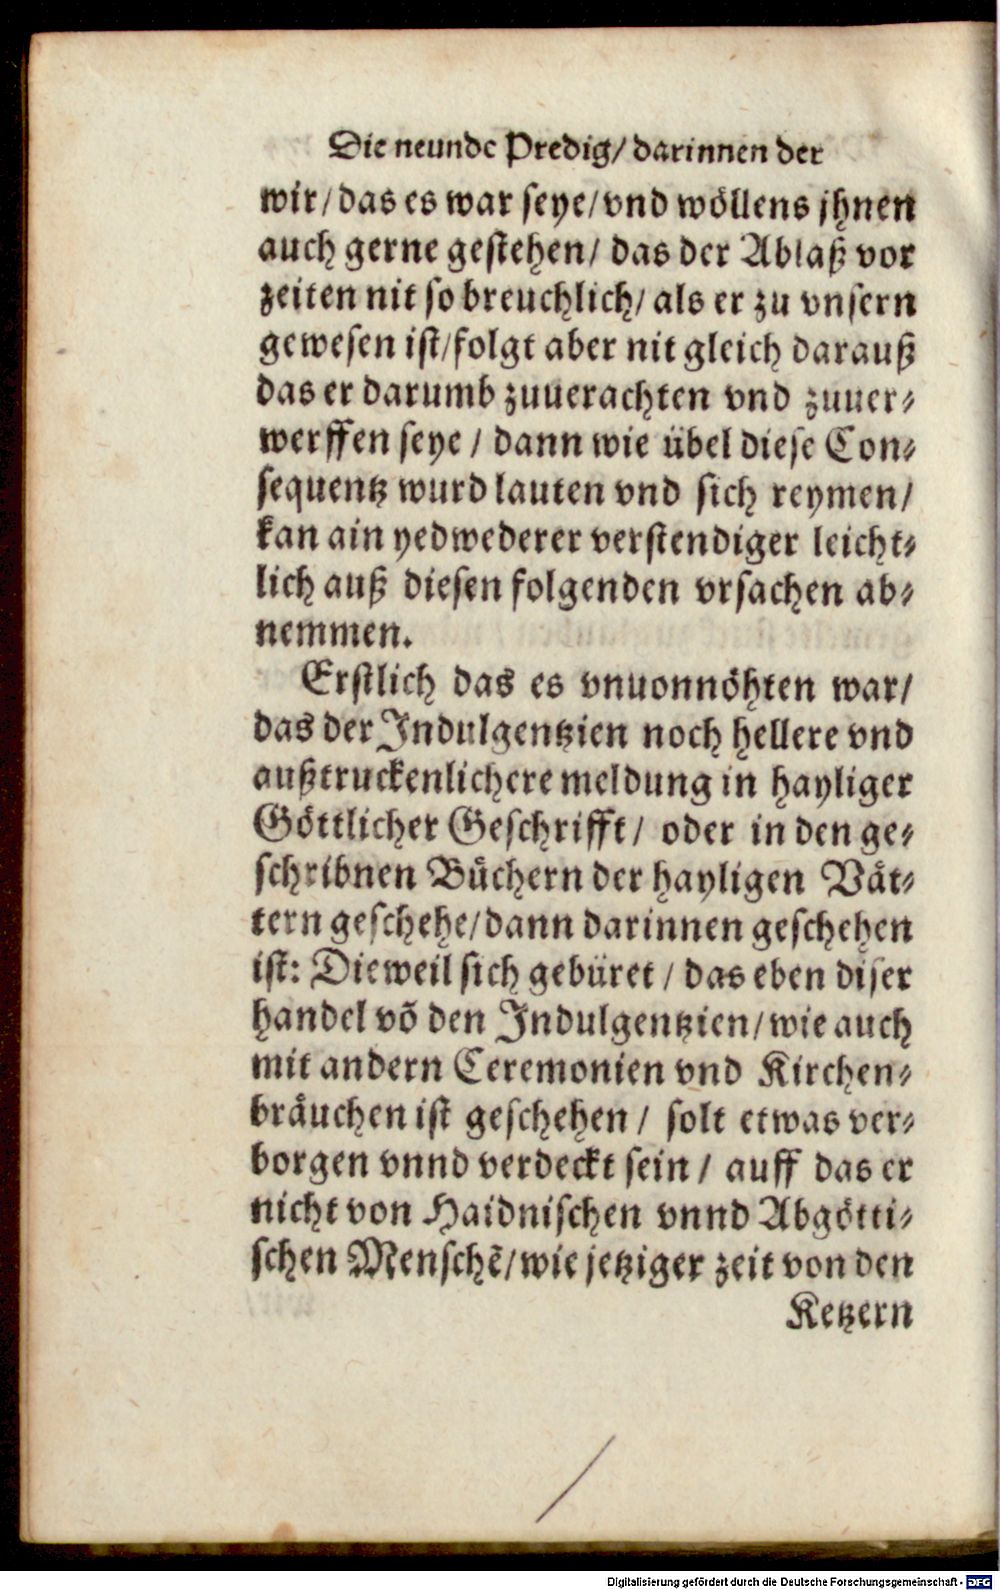 Die neunde Predig/ darinnen der
wir/das es war seye/vnd wöllens jhnen
auch gerne gestehen/ das der Ablaß vor
zeiten nit so breuchlich/ als er zu vnsern
gewesen ist/folgt aber nit gleich darauß
das er darumb zuuerachten vnd zuuer-
werffen seye / dann wie übel diese Con-
sequentz wurd lauten vnd sich reymen/
kan ain yedwederer verstendiger leicht-
lich auß diesen folgenden vrsachen ab-
nemmen.
Erstlich das es vnuonnöhten war/
das der Indulgentzien noch hellere vnd
außtruckenlichere meldung in hayliger
Göttlicher Geschrifft/ oder in den ge-
schribnen Büchern der hayligen Vät-
tern geschehe/dann darinnen geschehen
ist: Dieweil sich gebüret / das eben diser
handel võ den Indulgentzien/wie auch
mit andern Ceremonien vnd Kirchen-
bräuchen ist geschehen / solt etwas ver-
borgen vnnd verdeckt sein / auff das er
nicht von Haidnischen vnnd Abgötti-
schen Menschẽ/wie jetziger zeit von den
Ketzern
Digitalisierung gefördert durch die Deutsche Forschungsgemeinschaft - DFG